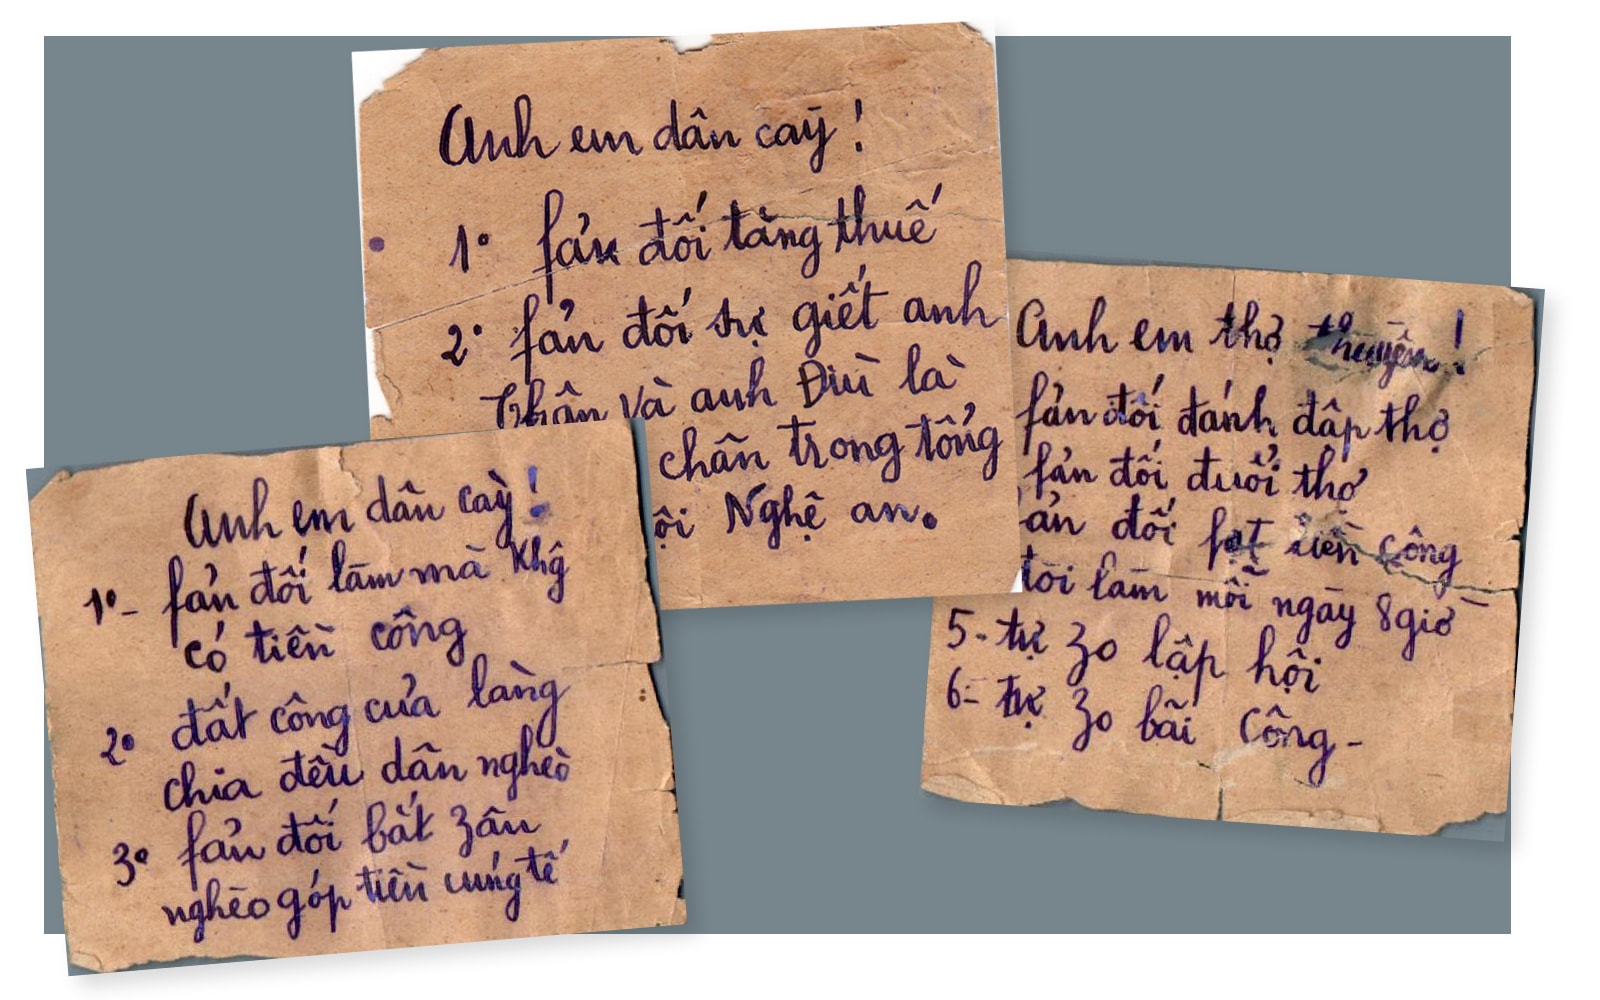 Anh em dân caỳ!
1° fản đối tăng thuế
2° fản đối sự giết anh
và anh Điù là
chân trong tổng
ội Nghệ an.
Anh em dân caỳ!
1°- fản đối làm mà Khg̃
có tiền công
2° đất công cuả laǹg
chia đều dân nghèo
3° fản đối bắt zân
nghèo góp tiền cúng tế
Anh em thợ thuyền!
fản đối đánh đâp thợ
fản đối đuổi thợ
ản đối fạt tiền công
tòi làm mỗi ngày 8 giờ
5- tự zo lập hội
6- tự zo bãi công-